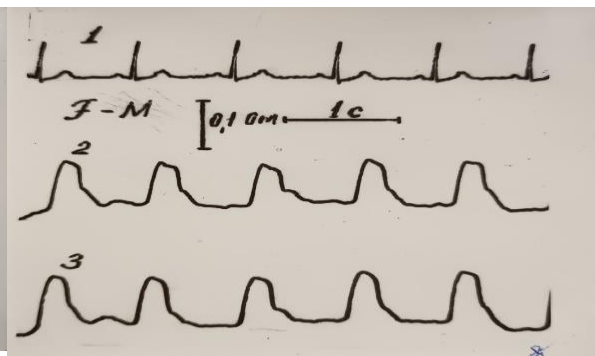 1
F-M 0,1 Om 1 c
2
3